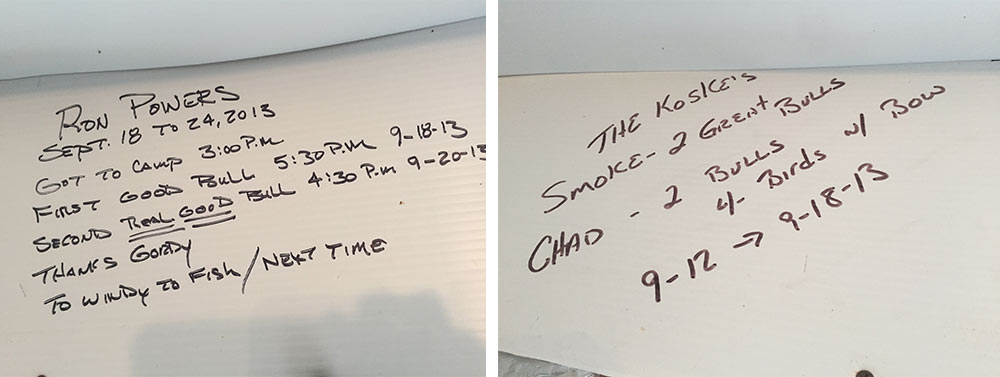 RON POWERS
SEPT. 18 TO 24, 2013
GOT TO CAMP 3:00 P.M
FIRST GOOD BULL 5:30 P.M 9-18-13
SECOND REAL GOOD BULL 4:30 P.M 9-20-13
THANKS GORDY
TO WINDY TO FISH / NEXT TIME
THE KOSKE'S
SMOKE - 2 GREAT BULLS
CHAD - 2 BULLS
4 - Birds w/ BOW
9-12 → 9-18-13